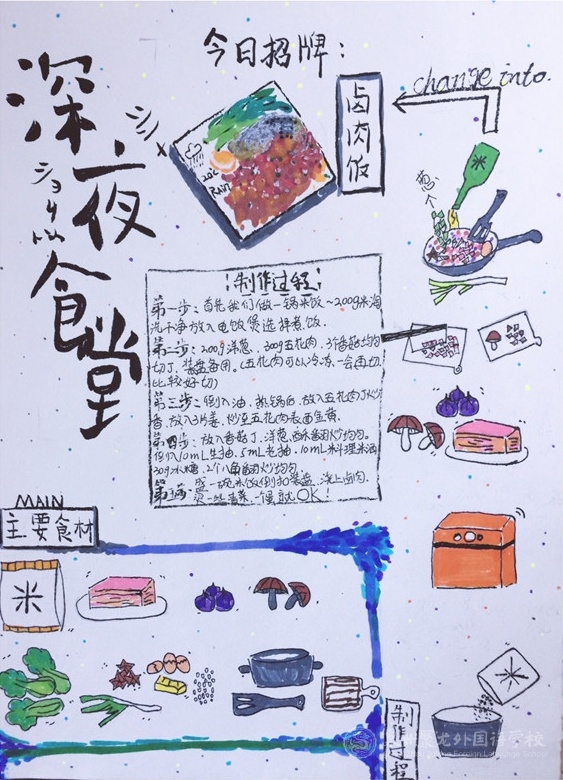 今日招牌：
深夜食堂
卤肉饭
change into.
葱
米
制作过程
第一步：首先我们做一锅米饭~200g米淘
洗干净放入电饭煲选择煮饭.
第二步：200g洋葱、300g五花肉、3个香菇均匀
切丁,装盘备用。(五花肉可以冷冻一会再切
比较好切)
第三步：倒入油,热锅后,放入五花肉丁炒
香,放入3片姜,炒至五花肉表面金黄.
第四步：放入香菇丁、洋葱酥翻炒均匀。
倒入10mL生抽.5mL老抽.10mL料理米酒
30g冰糖、2个八角翻炒均匀
盛一碗米饭倒扣装盘,浇上卤肉.
一些青菜.一个蛋就OK!
MAIN
主要食材
米
米
制作过程
外国语学校